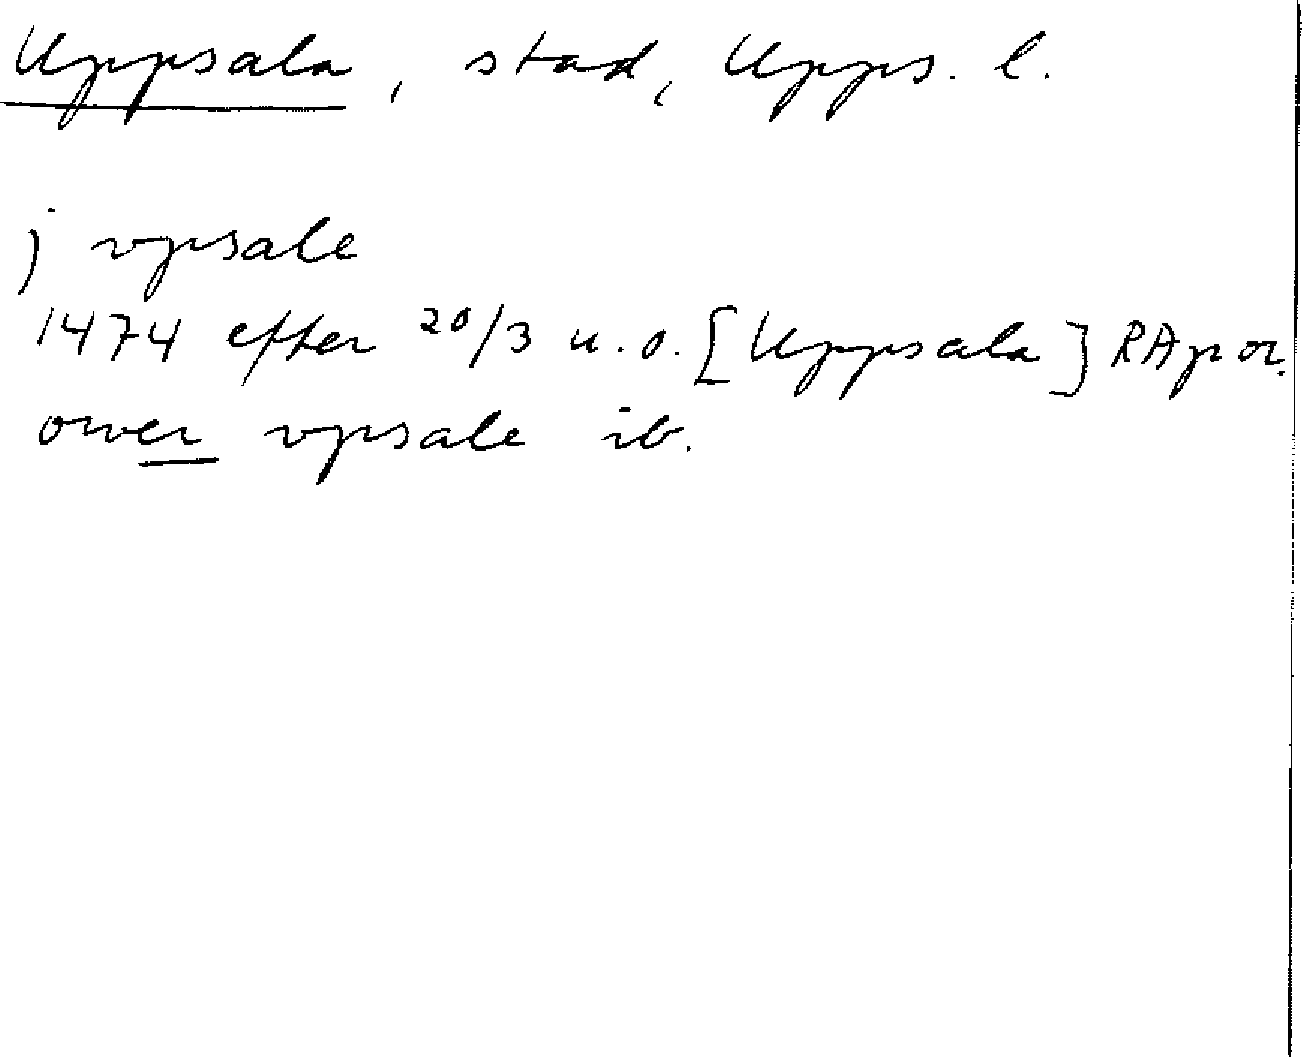 Uppsala, stad, Upps. l.
j vpsale
1474 efter 20/3 u.o. [Uppsala] RAp or.
ower vpsale ib.